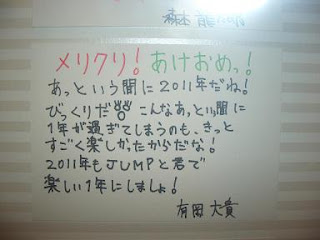 森本 龍太郎
メリクリ! あけおめっ!
あっという間に2011年だね!
びっくりだ こんなあっという間に
1年が過ぎてしまうのも、きっと
すごく楽しかったからだな!
2011年もJUMPと君で
楽しい1年にしましょ!
有岡 大貴